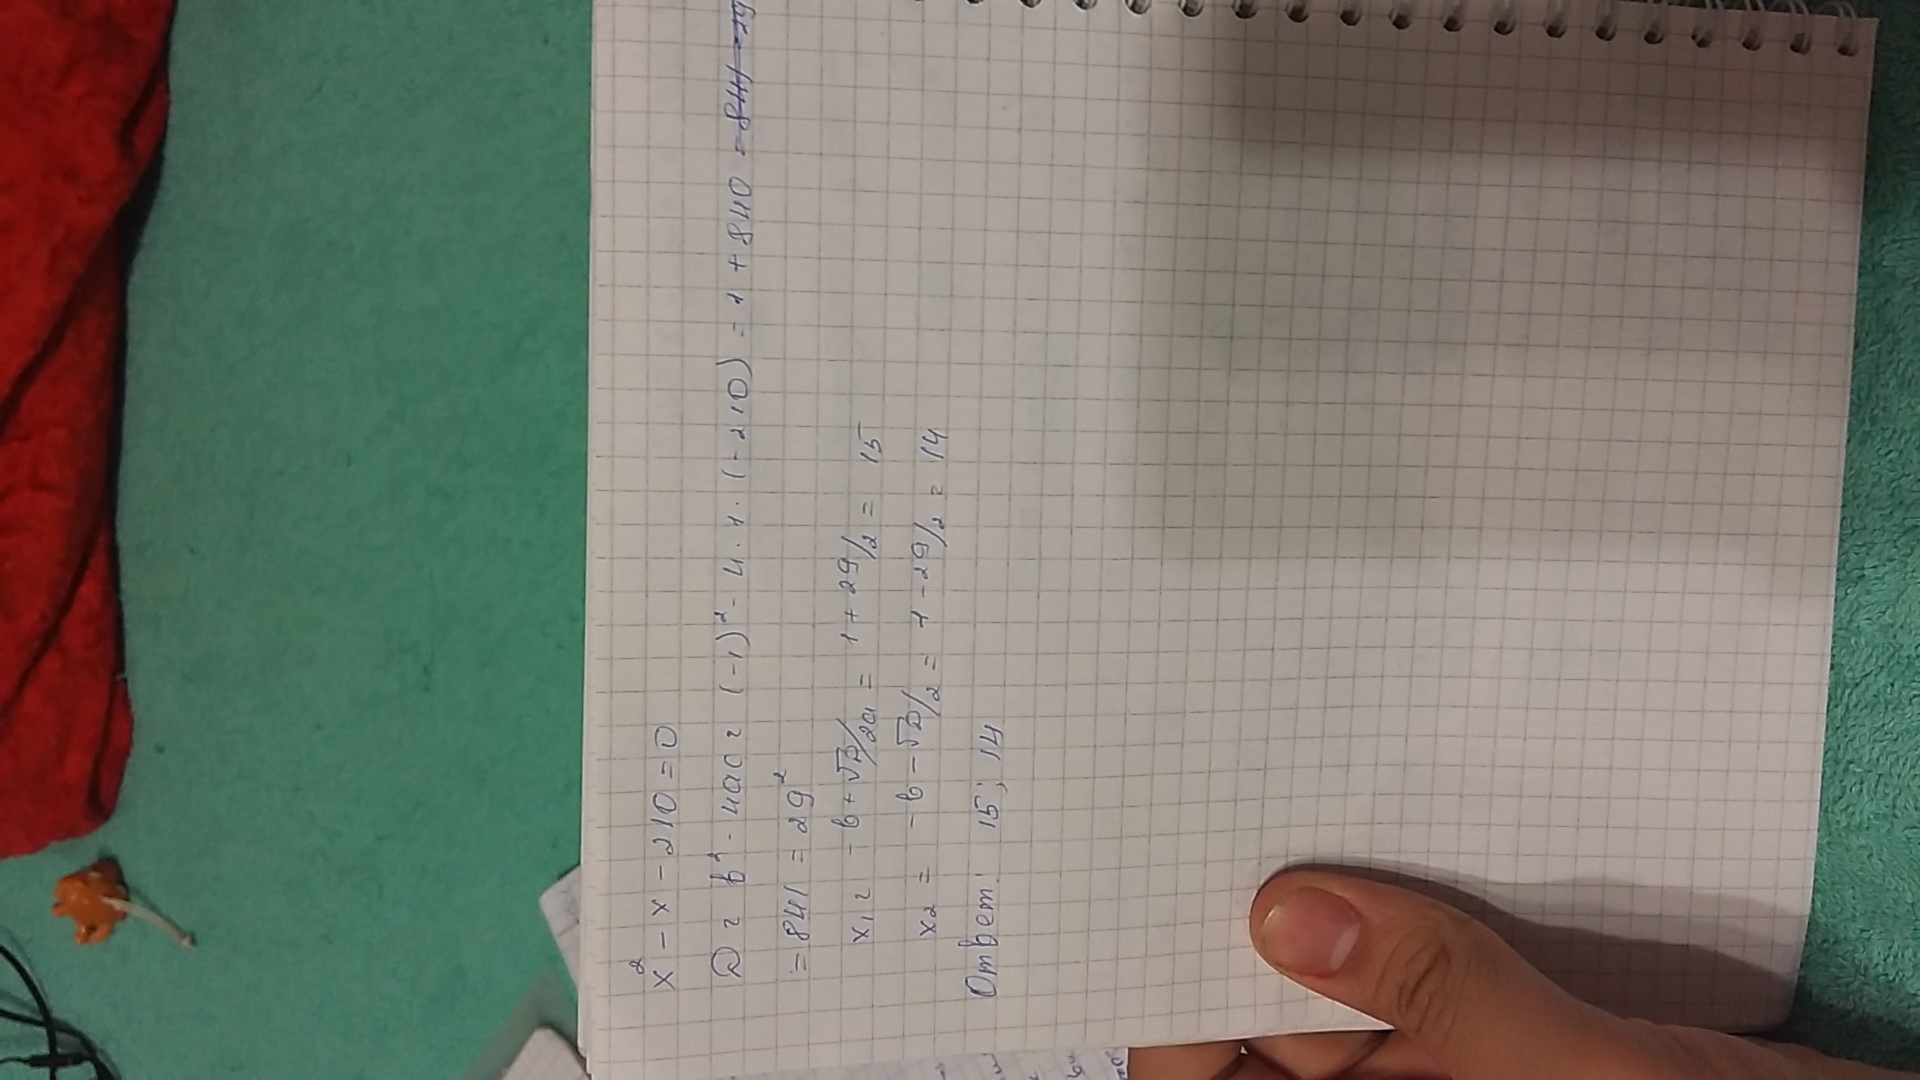 x² - x - 210 = 0
D = b² - 4ac = (-1)² - 4 · 1 · (-210) = 1 + 840 = 841 =
= 841 = 29²
x₁ = -b + √D/2a = 1 + 29/2 = 15
x₂ = -b - √D/2 = 1 - 29/2 = 14
Ответ: 15; 14